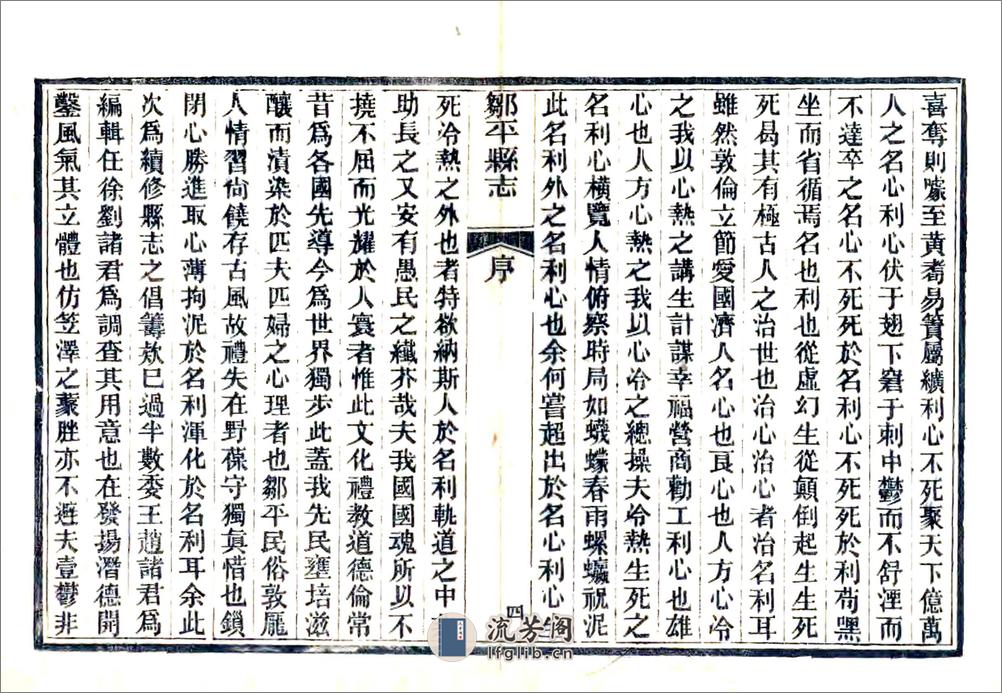 喜奪則噓至黃耇易簀屬纊利心不死聚天下億萬
人之名心利心伏于翅下窘于刺中鬱而不舒湮而
不達卒之名心不死死於名利心不死死於利茍罘
坐而省循焉名也利也從虛幻生從顛倒起生生死
死曷其有極古人之治世也治心治心者治名利耳
雖然敦倫立節愛國濟人名心也良心也人方心冷
之我以心熱之講生計謀幸福營商勸工利心也雄
心也人方心熱之我以心冷之總操夫冷熱生死之
名利心橫覽人情俯察時局如蠛蠓春雨螺蠃祝泥
此名利外之名利心也余何嘗超出於名心利心生
鄒平縣志
序
四
死冷熱之外也者特欲納斯人於名利軌道之中
助長之又安有愚民之纖芥哉夫我國國魂所以不
撓不屈而光耀於人寰者惟此文化禮教道德倫常
昔爲各國先導今爲世界獨步此蓋我先民壅培滋
釀而漬染於匹夫匹婦之心理者也鄒平民俗敦厖
人情習尙饒存古風故禮失在野葆守獨眞惜也鎖
閉心勝進取心薄拘泥於名利渾化於名利耳余此
次爲續修縣志之倡籌欵巳過半數委王趙諸君爲
編輯任徐劉諸君爲調查其用意也在發揚潛德開
鑿風氣其立體也仿笠澤之蒙胜亦不避夫壹鬱非
流芳阁
lfglib.cn